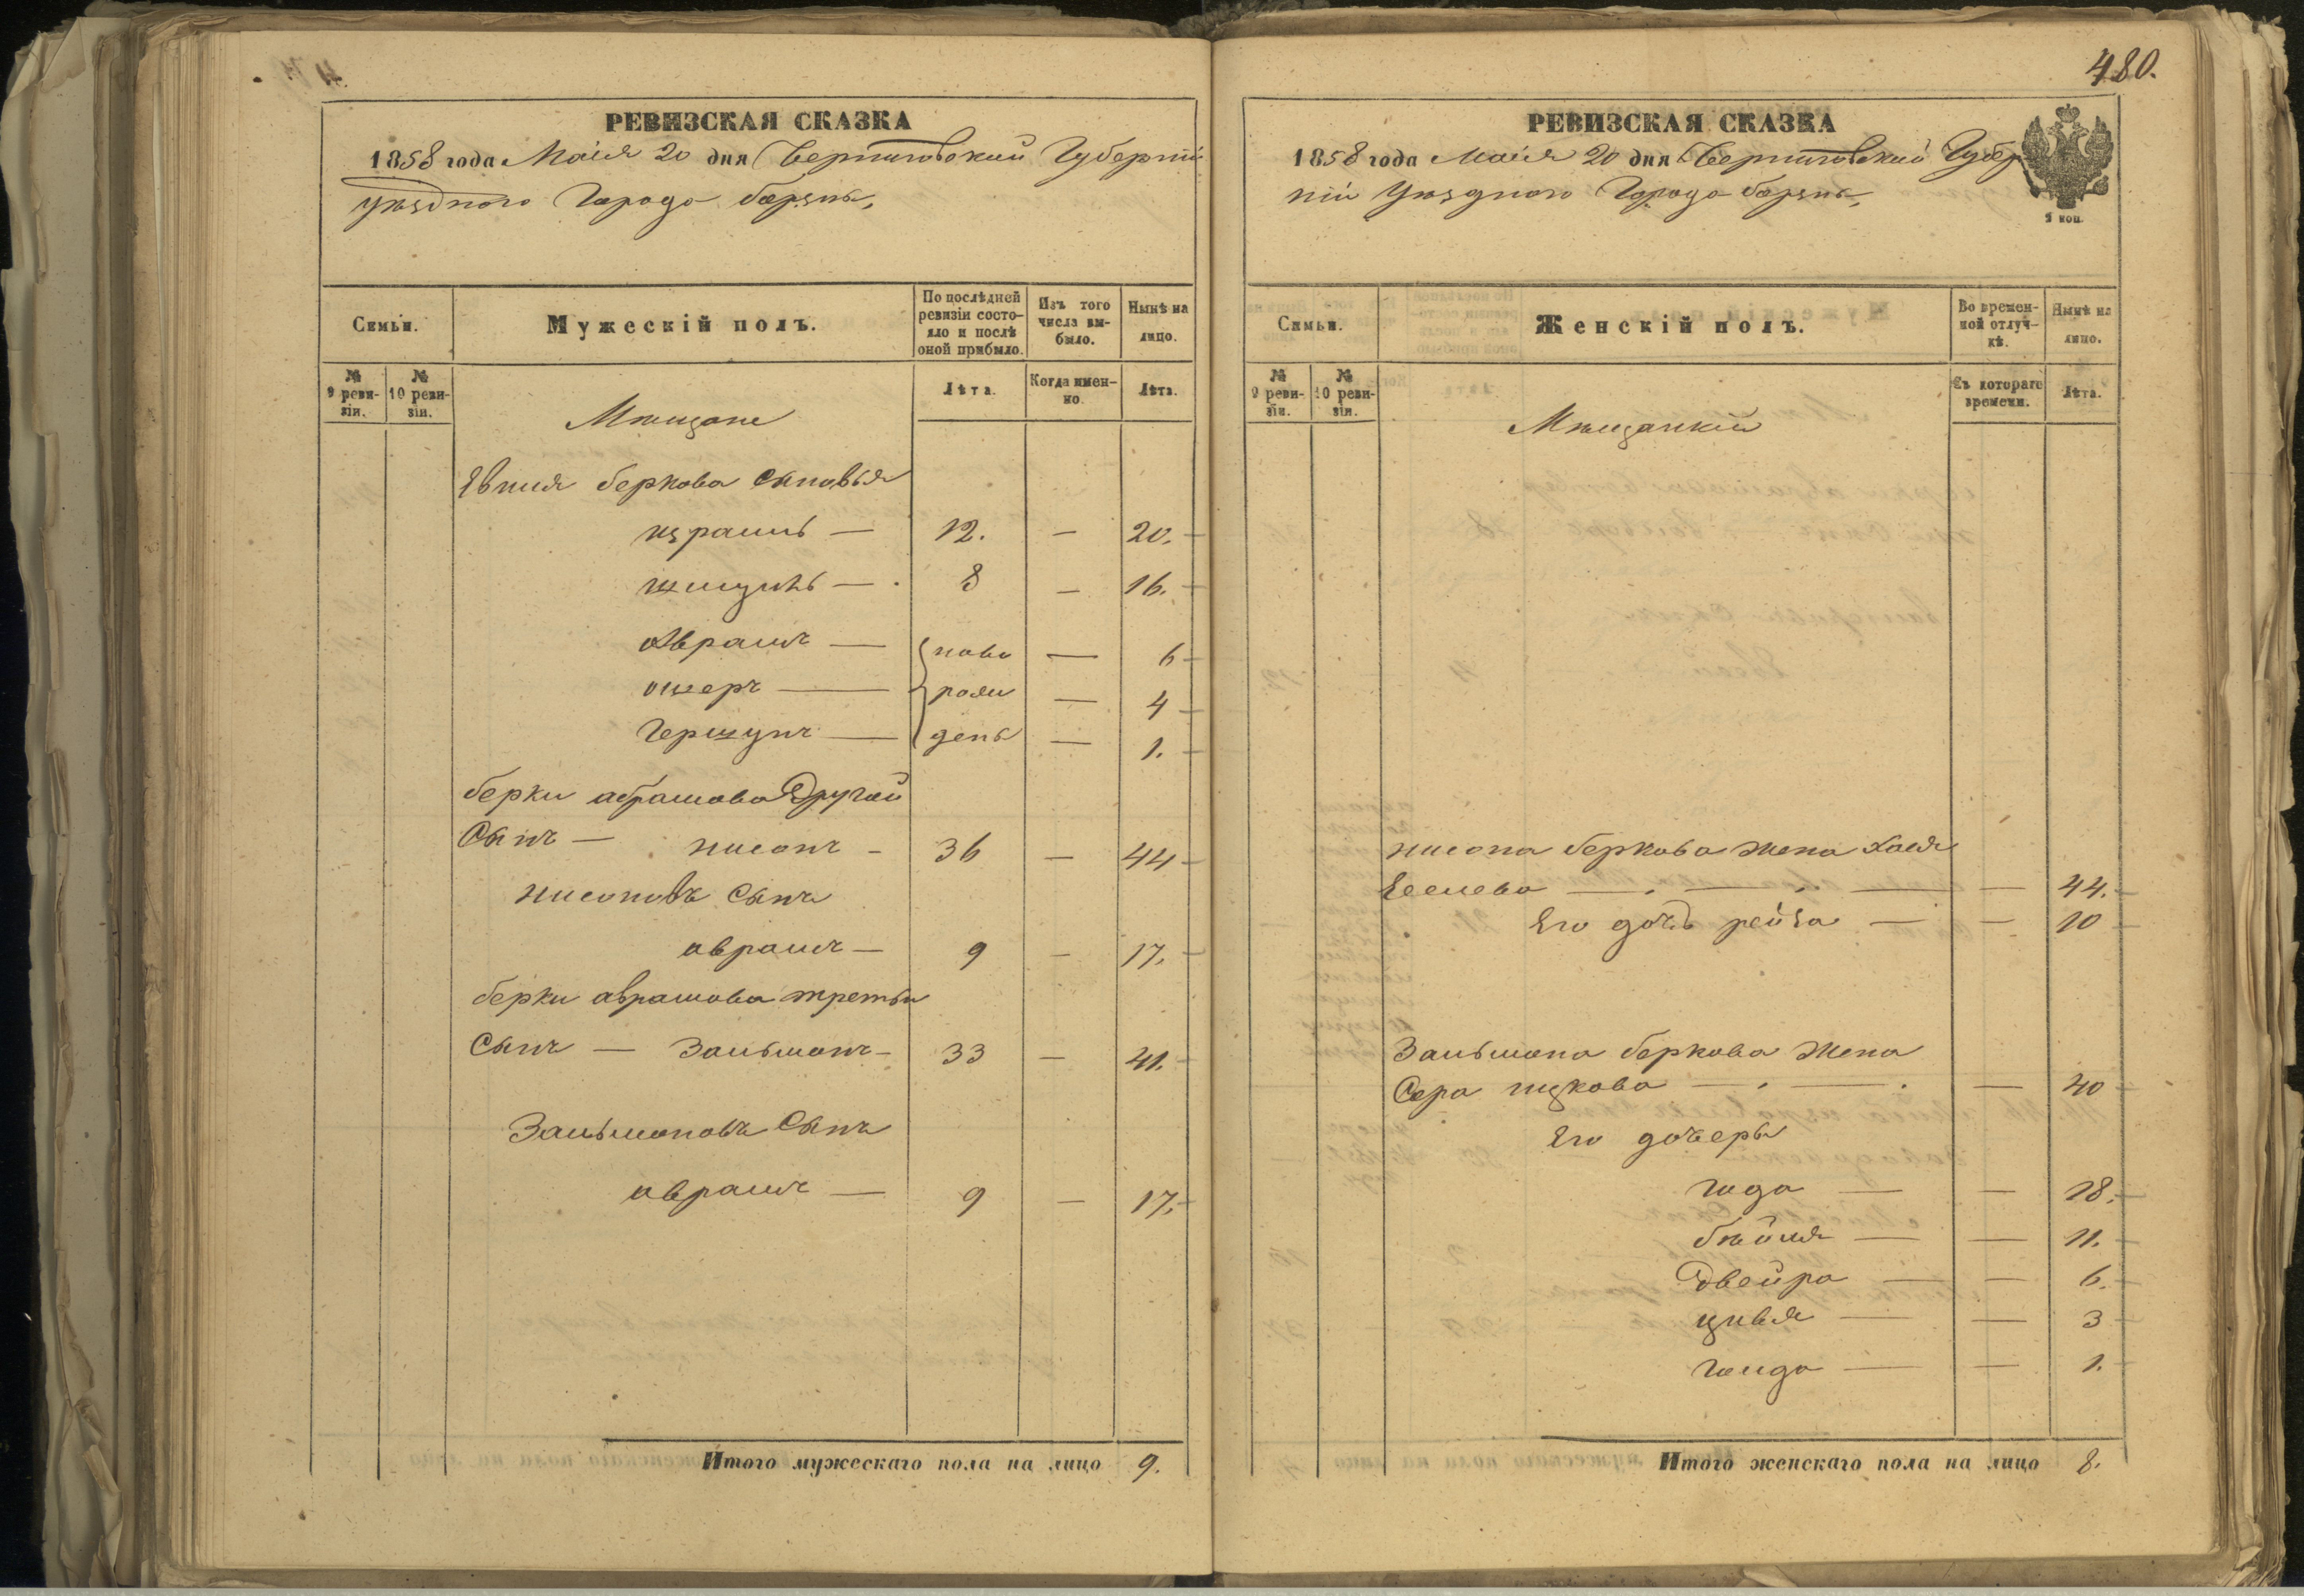 РЕВИЗСКАЯ СКАЗКА
1858 года Маія 20 дня Черниговской Губерніи
уѣзднаго Города борзны,
Симьи.
Мужескій полъ.
По послѣдней ревизіи состояло и послѣ оной прибыло.
Изъ того числа выбыло.
Нынѣ на лицо.
№ 9 ревизіи.
№ 10 ревизіи.
Лѣта.
Когда именно.
Лѣта.
Мѣщане
беркова Сыновья
израиль — 12. — 20.
8 — 16.
Авраамъ — ново — 6
ошеръ — рожи — 4
Гершунъ — денъ — 1.
берки абрамова Другой
Сынъ — нисонъ — 36 — 44
нисоновъ Сынъ
авраамъ — 9 — 17.
берки аврамова третьи
Сынъ — Зальманъ — 33 — 41.
Зальмановъ Сынъ
авраамъ — 9 — 17.
Итого мужескаго пола на лицо 9.
480.
РЕВИЗСКАЯ СКАЗКА
1858 года Маія 20 дня Черниговской Губер
ніи Уѣзднаго Города борзны,
2 коп.
Симьи.
Женскій полъ.
Во временной отлучкѣ.
Нынѣ на лицо.
№ 9 ревизіи.
№ 10 ревизіи.
Съ котораго времени.
Лѣта.
Мѣщанкій
нисона беркова жена хася
— — 44.
Его дочь рейза — — 10
Зальмана беркова Жена
Сера ицкова — — 40
Его дочеры
года — — 18.
бейля — — 11.
Двейра — — 6.
цивья — — 3
— — 1.
Итого женскаго пола на лицо 8.